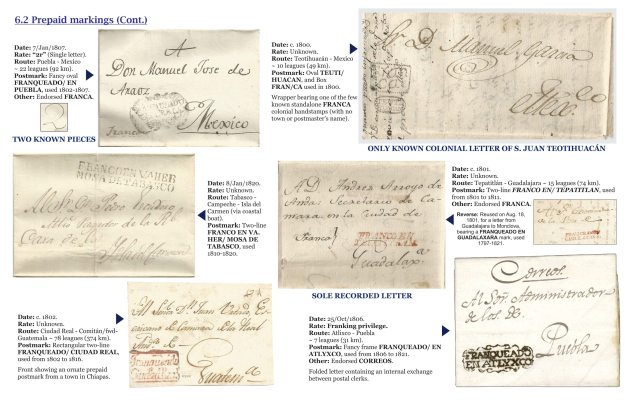 6.2 Prepaid markings (Cont.)
Date: 7/Jan/1807.
Rate: "2r" (Single letter).
Route: Puebla - Mexico
~ 22 leagues (92 km).
Postmark: Fancy oval
FRANQUEADO/ EN
PUEBLA, used 1802-1807.
Other: Endorsed FRANCA.
TWO KNOWN PIECES
A
Don Manuel Jose de
Araoz
Mexico
Franca
Date: c. 1800.
Rate: Unknown.
Route: Teotihuacán - Mexico
~ 10 leagues (49 km).
Postmark: Oval TEUTI/
HUACAN, and Box
FRAN/CA used in 1800.
Wrapper bearing one of the few
known standalone FRANCA
colonial handstamps (with no
town or postmaster's name).
D. Manuel Garcia
Mexco
ONLY KNOWN COLONIAL LETTER OF S. JUAN TEOTIHUACÁN
FRANCO EN VA HER
MOSA DE TABASCO
Date: 8/Jan/1820.
Rate: Unknown.
Route: Tabasco -
Campeche - Isla del
Carmen (via coastal
boat).
Postmark: Two-line
FRANCO EN VA.
HER/ MOSA DE
TABASCO, used
1810-1820.
A D. Andres Arroyo de
Anda Secretario de Ca-
mara en la ciudad de
Franco
FRANCO EN
TEPATITLAN
Guadalaxa
SOLE RECORDED LETTER
Date: c. 1801.
Rate: Unknown.
Route: Tepatitlán - Guadalajara ~ 15 leagues (74 km).
Postmark: Two-line FRANCO EN/ TEPATITLAN, used
from 1801 to 1811.
Other: Endorsed FRANCO.
Reverse: Reused on Aug. 18,
1801, for a letter from
Guadalajara to Monclova,
bearing a FRANQUEADO EN
GUADALAXARA mark, used
1797-1821.
Date: c. 1802.
Rate: Unknown.
Route: Ciudad Real - Comitán/fwd-
Guatemala ~ 78 leagues (374 km).
Postmark: Rectangular two-line
FRANQUEADO/ CIUDAD REAL,
used from 1802 to 1816.
Front showing an ornate prepaid
postmark from a town in Chiapas.
Franqueado
Date: 25/Oct/1806.
Rate: Franking privilege.
Route: Atlixco - Puebla
~ 7 leagues (31 km).
Postmark: Fancy frame FRANQUEADO/ EN
ATLYXCO, used from 1806 to 1821.
Other: Endorsed CORREOS.
Folded letter containing an internal exchange
between postal clerks.
Correos.
Al Sor. Administrador
de los de
Puebla
FRANQUEADO
EN ATLYXCO